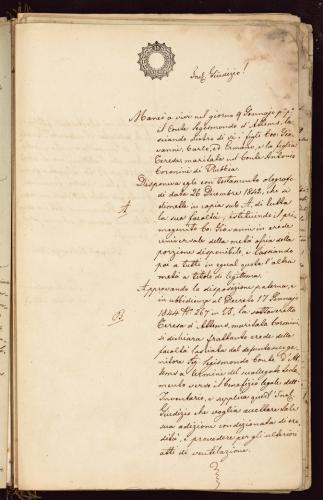 Incl. Giudizio!
Mancò a' vivi nel giorno 9 Gennajo p.p.
il Conte Sigismondo d'Attems, la-
sciando dietro di sè i figli Co: Gio-
vanni, Carlo, ed Ermanno, e la figlia
Teresa maritata nel Conte Antonio
Coronini di
Disponeva egli con testamento olografo
di data 20 Decembre 1842, che si
dimette in copia sub A. di tutta
A
la sua facoltà, istituendo il pri-
mogenito Co: Giovanni in erede
universale della metà ossia della
porzione disponibile, e lasciando
poi a tutti in eguali quote l'altra
metà a titolo di legittima.
Approvando la disposizione paterna, e
in ubbidienza al Decreto 17 Gennajo
B
1844 N° 267 in B, la sottoscritta
Teresa d'Attems, maritata Coronini
si dichiara frattanto erede della
facoltà lasciata dal defunto suo ge-
nitore Sigismondo Conte d'At-
tems a termine del suallegato testa-
mento verso il benefizio legale dell'
Inventario, e supplica quest' Incl.
Giudizio che voglia accettare tale
sua adizione condizionata di ere-
dità, e provvedere per gli ulteriori
atti di ventilazione.